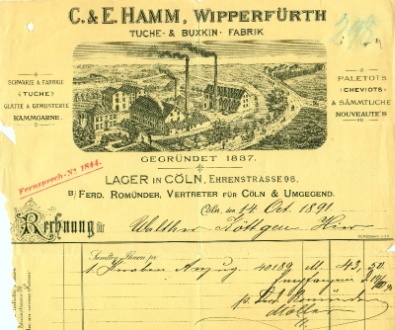 C. & E. HAMM, WIPPERFÜRTH
TUCHE- & BUXKIN- FABRIK
SCHWARZE & FARBIGE
(TUCHE)
GLATTE & GEMUSTERTE
KAMMGARNE.
PALETOTS
(CHEVIOTS)
& SÄMMTLICHE
NOUVEAUTÉS
GEGRÜNDET 1837.
Fernsprech-No 1844.
LAGER IN CÖLN, EHRENSTRASSE 98,
B/ FERD. ROMÜNDER, VERTRETER FÜR CÖLN & UMGEGEND.
Cöln, den 14 Oct. 1891
Rechnung für Walther Köttgen Hier
1 Knaben Anzug 40189 M 43,50
Empfangen
p. Ferd. Romünder
Möller